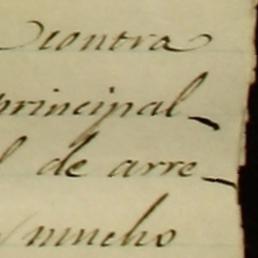 contra
principal-
de arre-
mucho